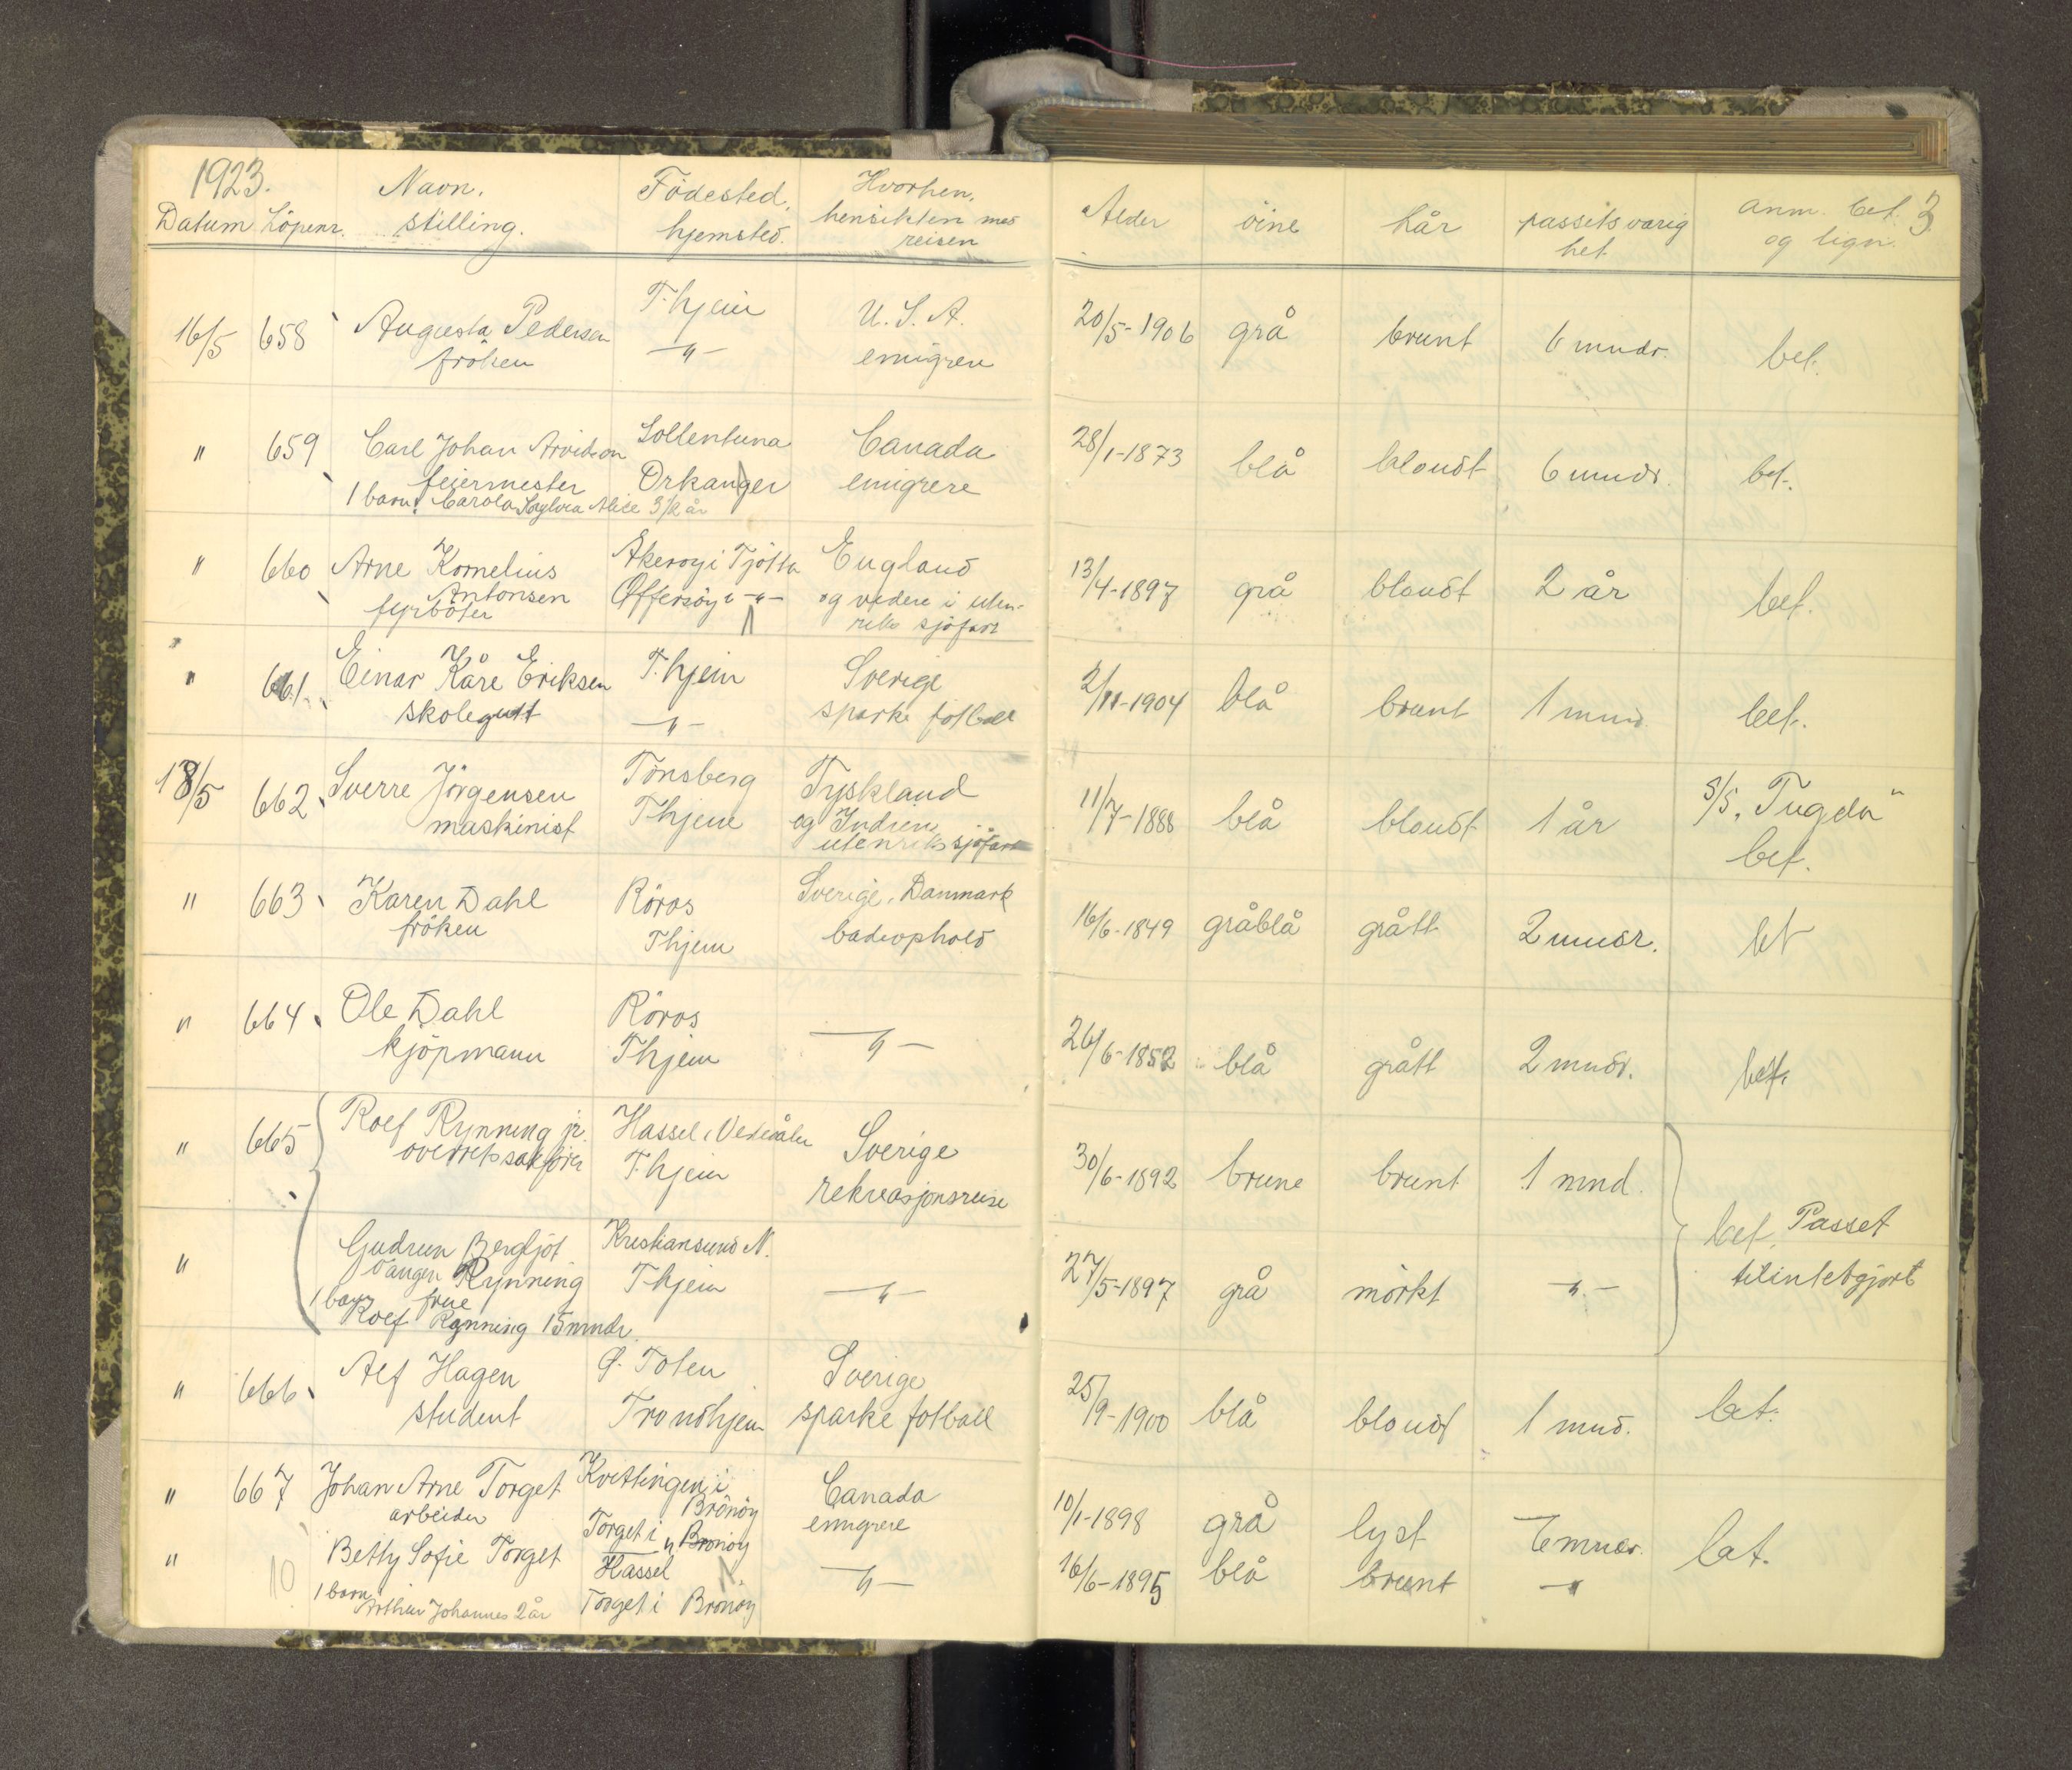 1923.
Datum Löpenr. Navn. stilling. Födested. hjemsted. Hvorhen. hensikten med reisen Alder öine hår passets varighet anm. bet. og lign. 3
16/5 658 Augusta Pedersen T.hjem U.S.A. 20/5-1906 grå brunt 6 mndr. bet.
fröken -"- emigrere
" 659 Carl Johan Arvidson Sollentuna Canada 28/1-1873 blå blondt 6 mndr. bet.
feiermester Orkanger emigrere
1 barn: Carola Sylvia Alice 3 1/2 år
" 660 Arne Kornelius Antonsen Åkeröy i Tjötta England 13/4-1897 grå blondt 2 år bet.
fyrböter Offersöy i -"- og videre i uten-
riks sjöfart
" 661. Einar Kåre Eriksen T.hjem Sverige 2/11-1904 blå brunt 1 mnd. bet.
skolegutt -"- sparke fotball
18/5 662 Sverre Jörgensen Tönsberg Tyskland 11/7-1888 blå blondt 1 år S/S. "Tugela"
maskinist Thjem og Indien bet.
utenriks sjöfart
" 663 Karen Dahl Röros Sverige, Danmark 16/6-1849 gråblå grått 2 mndr. bet
fröken Thjem badeophold
" 664 Ole Dahl Röros -"- 26/6-1852 blå grått 2 mndr. bet.
kjöpmann Thjem
" 665 Rolf Rynning jr. Hassel i Vesterålen Sverige 30/6-1892 brune brunt 1 mnd.
overretssakförer T.hjem rekreasjonsreise
" Gudrun Bergljot Kristiansund N. -"- 27/5-1897 grå mörkt -"- bet. Passet
Vangen Rynning Thjem tilintetgjort
frue
1 barn Rolf Rynning 15 mndr.
" 666 Alf Hagen Ö. Toten Sverige 25/9-1900 blå blondt 1 mnd. bet.
student Trondhjem sparke fotball
" 667 Johan Arne Torget Kvittingen i Brönöy Canada 10/1-1898 grå lyst 6 mndr. bet.
arbeider Torget i Brönöy emigrere
" 10 Betty Sofie Torget Hassel -"- 16/6-1895 blå brunt -"
1 barn Arthur Johannes 2 år Torget i Brönöy